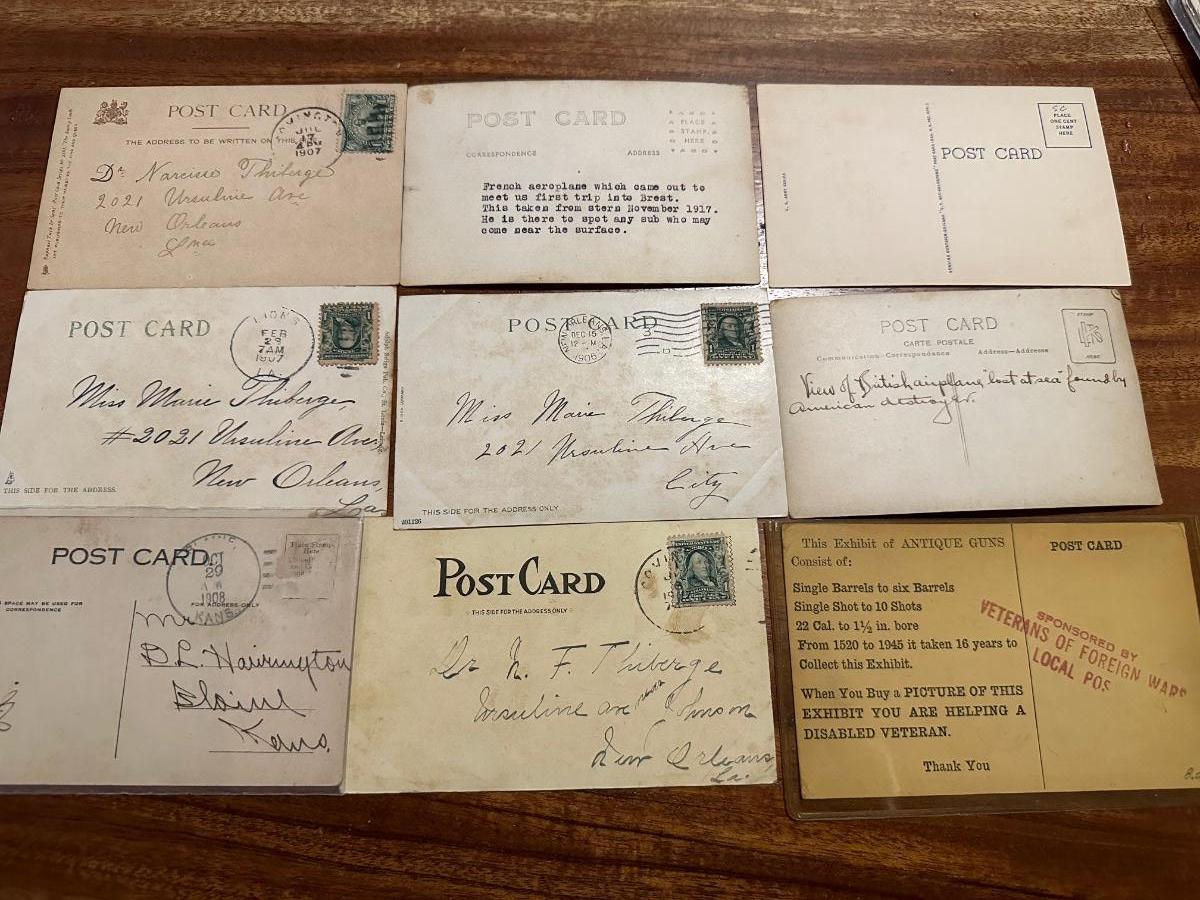 POST CARD
THE ADDRESS TO BE WRITTEN ON THIS
COVINGTON
JUL
17
4 PM
1907
Dr. Narcisse Thiberge
2021 Ursuline Ave
New Orleans
POST CARD
CORRESPONDENCE
ADDRESS
PLACE
STAMP
HERE
French aeroplane which came out to
meet us first trip into Brest.
This taken from stern November 1917.
He is there to spot any sub who may
come near the surface.
POST CARD
5¢
PLACE
ONE CENT
STAMP
HERE
POST CARD
LIONS
FEB
7AM
1907
LA.
Miss Marie Thiberge,
#2021 Ursuline Ave,
New Orleans,
La
THIS SIDE FOR THE ADDRESS.
POST CARD
NEW ORLEANS, LA
DEC 15
12-M
1906
Miss Marie Thiberge
2021 Ursuline Ave
City
THIS SIDE FOR THE ADDRESS ONLY
POST CARD
CARTE POSTALE
Communication-Correspondence
Address-Addresse
STAMP
HERE
View of British airplane "lost at sea" found by
American destroyer.
POST CARD
SPACE MAY BE USED FOR
CORRESPONDENCE
FOR ADDRESS ONLY
OCT
29
1908
KANS.
Place Stamp
Here
Mr
D.L. Hairrington
Blaine
Kans.
POST CARD
THIS SIDE FOR THE ADDRESS ONLY
Dr N. F. Thiberge
Ursuline ave Johnson
New Orleans
La.
This Exhibit of ANTIQUE GUNS
Consist of:
Single Barrels to six Barrels
Single Shot to 10 Shots
22 Cal. to 1½ in. bore
From 1520 to 1945 it taken 16 years to
Collect this Exhibit.
When You Buy a PICTURE OF THIS
EXHIBIT YOU ARE HELPING A
DISABLED VETERAN.
Thank You
POST CARD
SPONSORED BY
VETERANS OF FOREIGN WARS
LOCAL POS